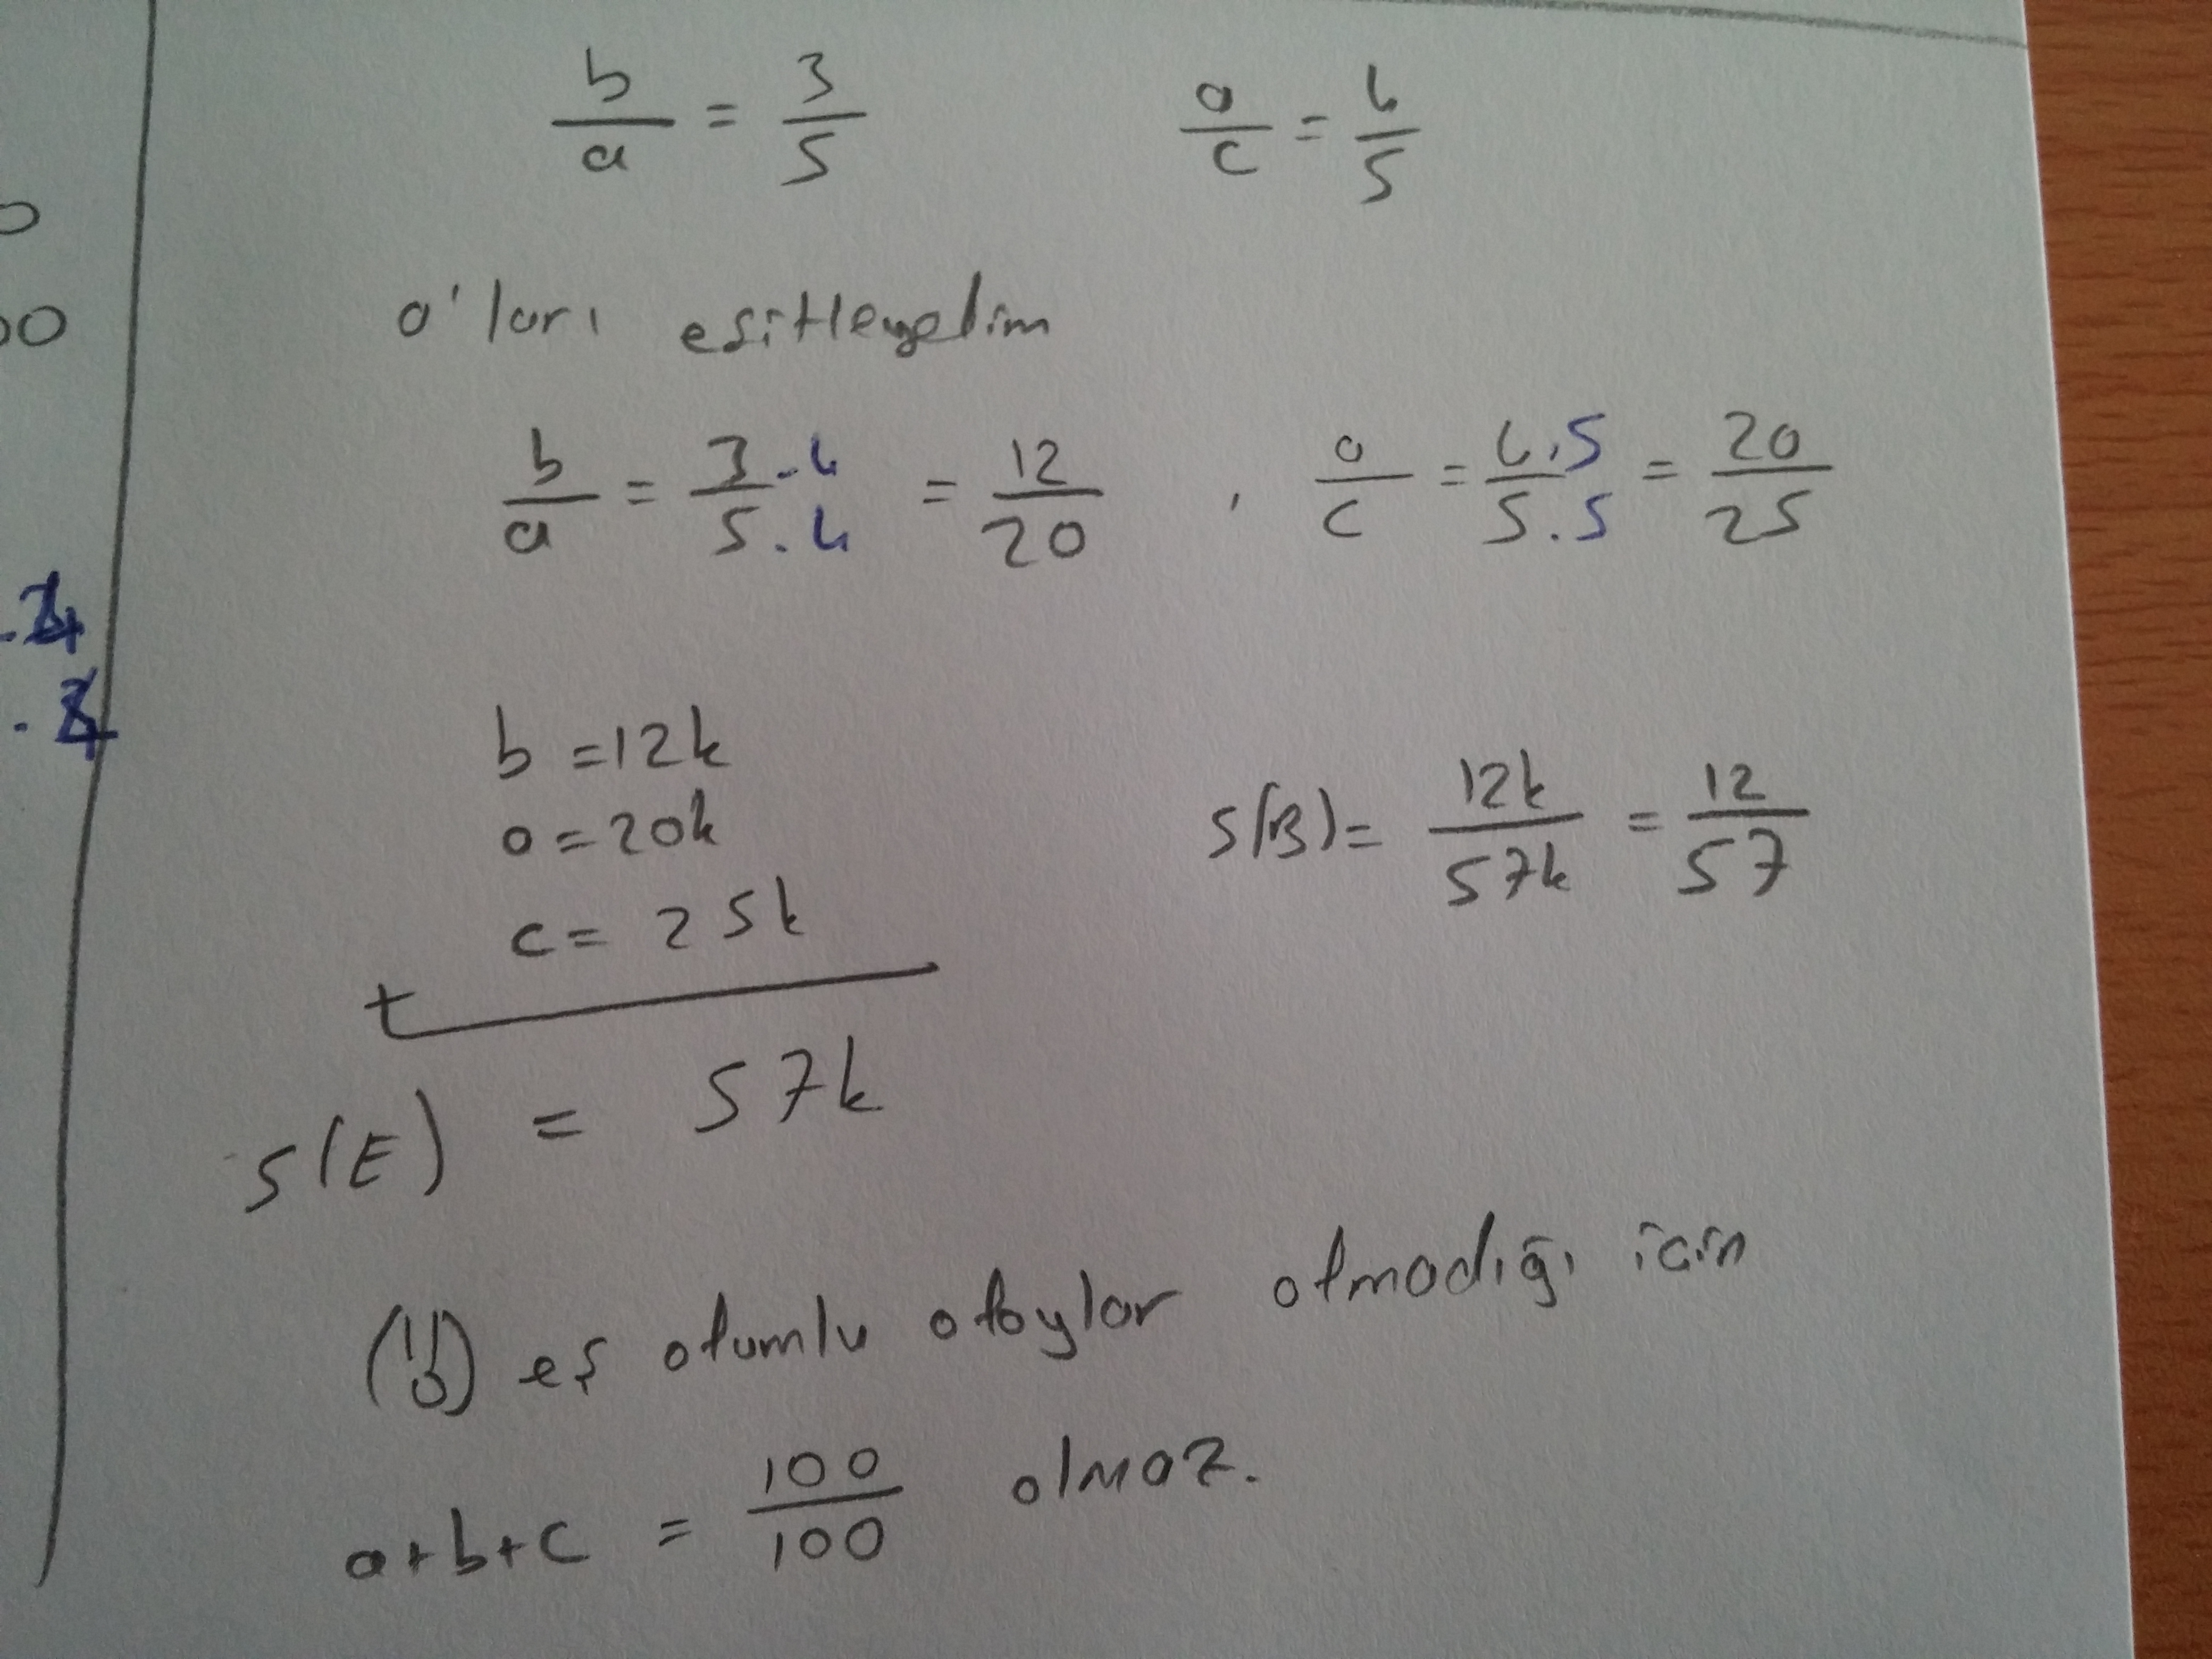 b/a = 3/5    a/c = 4/5
a'ları eşitleyelim
b/a = 3.4/5.4 = 12/20 , a/c = 4.5/5.5 = 20/25
b = 12k
a = 20k
c = 25k
+
s(E) = 57k
s(B) = 12k/57k = 12/57
eş olumlu olaylar olmadığı için
a+b+c = 100/100 olmaz.